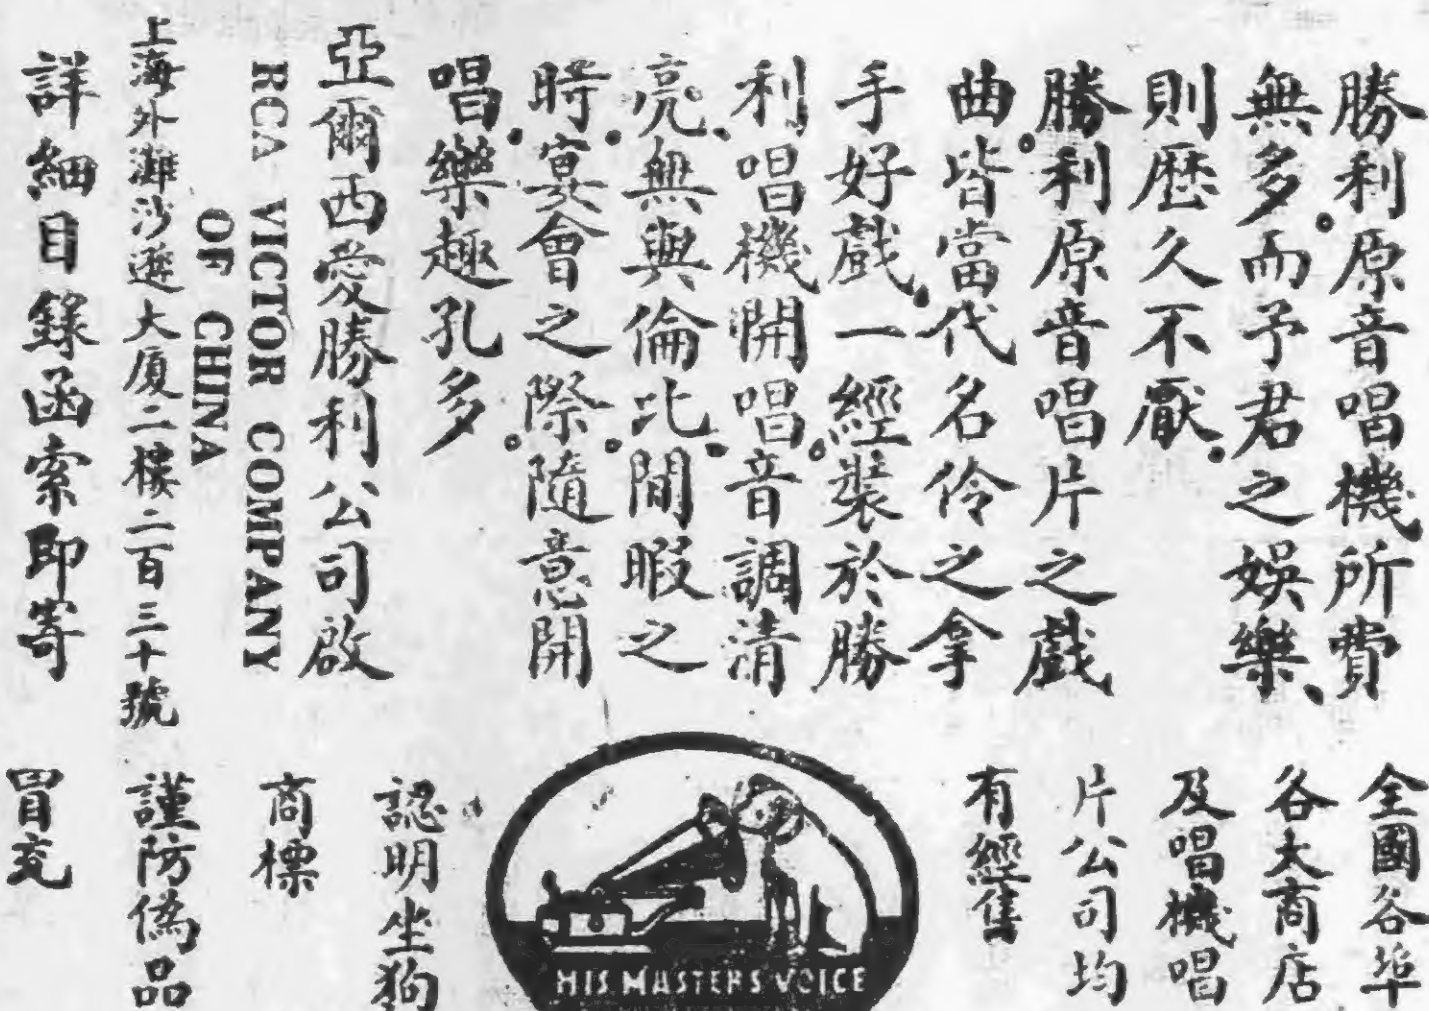 勝利原音唱機所費
無多。而予君之娛樂、
則歷久不厭。
勝利原音唱片之戲
曲。皆當代名伶之拿
手好戲、一經裝於勝
利唱機開唱。音調清
亮、無與倫比、閒暇之
時。宴會之際。隨意開
唱、樂趣孔多。
亞爾西愛勝利公司啟
RCA VICTOR COMPANY
OF CHINA
上海外灘沙遜大廈二樓二百三十號
詳細目錄函索即寄
全國各埠
各大商店
及唱機唱
片公司均
有經售
HIS MASTERS VOICE
認明坐狗
商標
謹防偽品
冒充